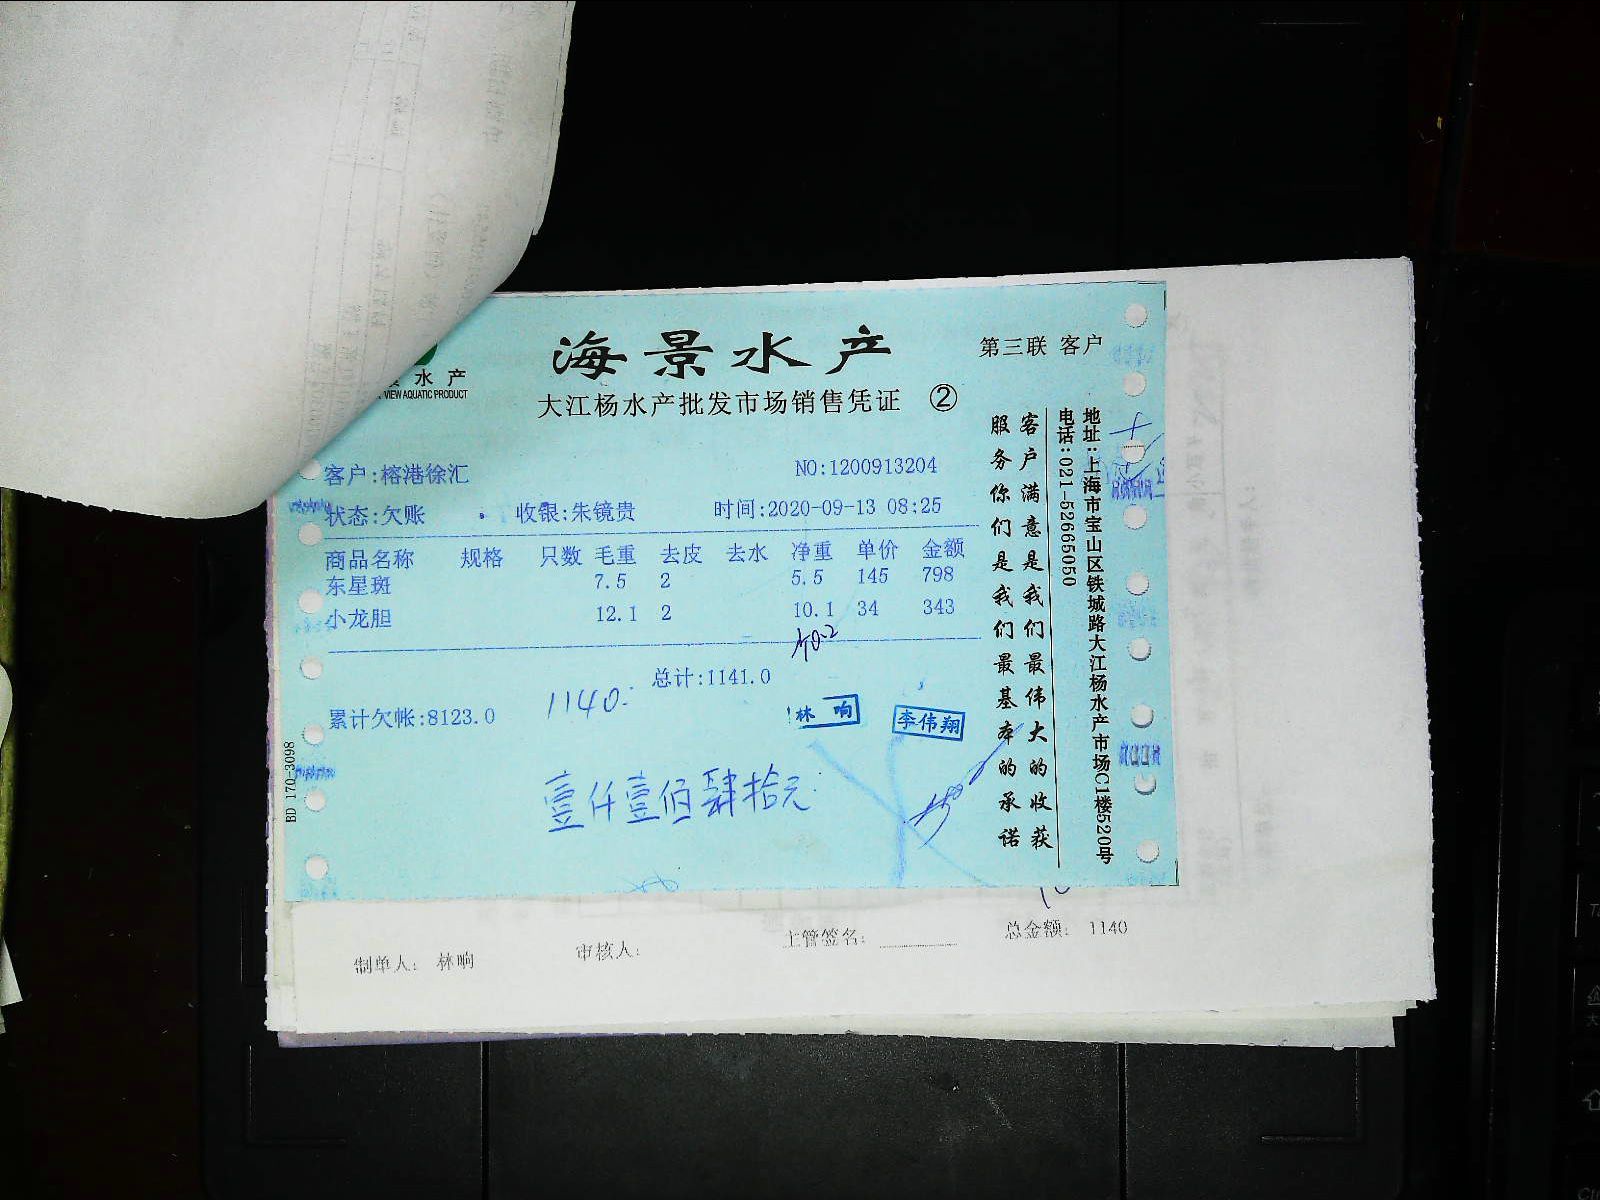 海景水产
第三联 客户
水产
VIEW AQUATIC PRODUCT
大江杨水产批发市场销售凭证 ②
客户:榕港徐汇 NO:1200913204
状态:欠账 收银:朱镜贵 时间:2020-09-13 08:25
商品名称 规格 只数 毛重 去皮 去水 净重 单价 金额
东星斑 7.5 2 5.5 145 798
小龙胆 12.1 2 10.1 34 343
总计:1141.0
累计欠帐:8123.0
1140.
林响
李伟翔
壹仟壹佰肆拾元
客户满意是我们最伟大的收获
服务你们是我们最基本的承诺
地址:上海市宝山区铁城路大江杨水产市场C1楼520号
电话:021-52665050
BD 170-3098
制单人: 林响 审核人: 主管签名: 总金额: 1140